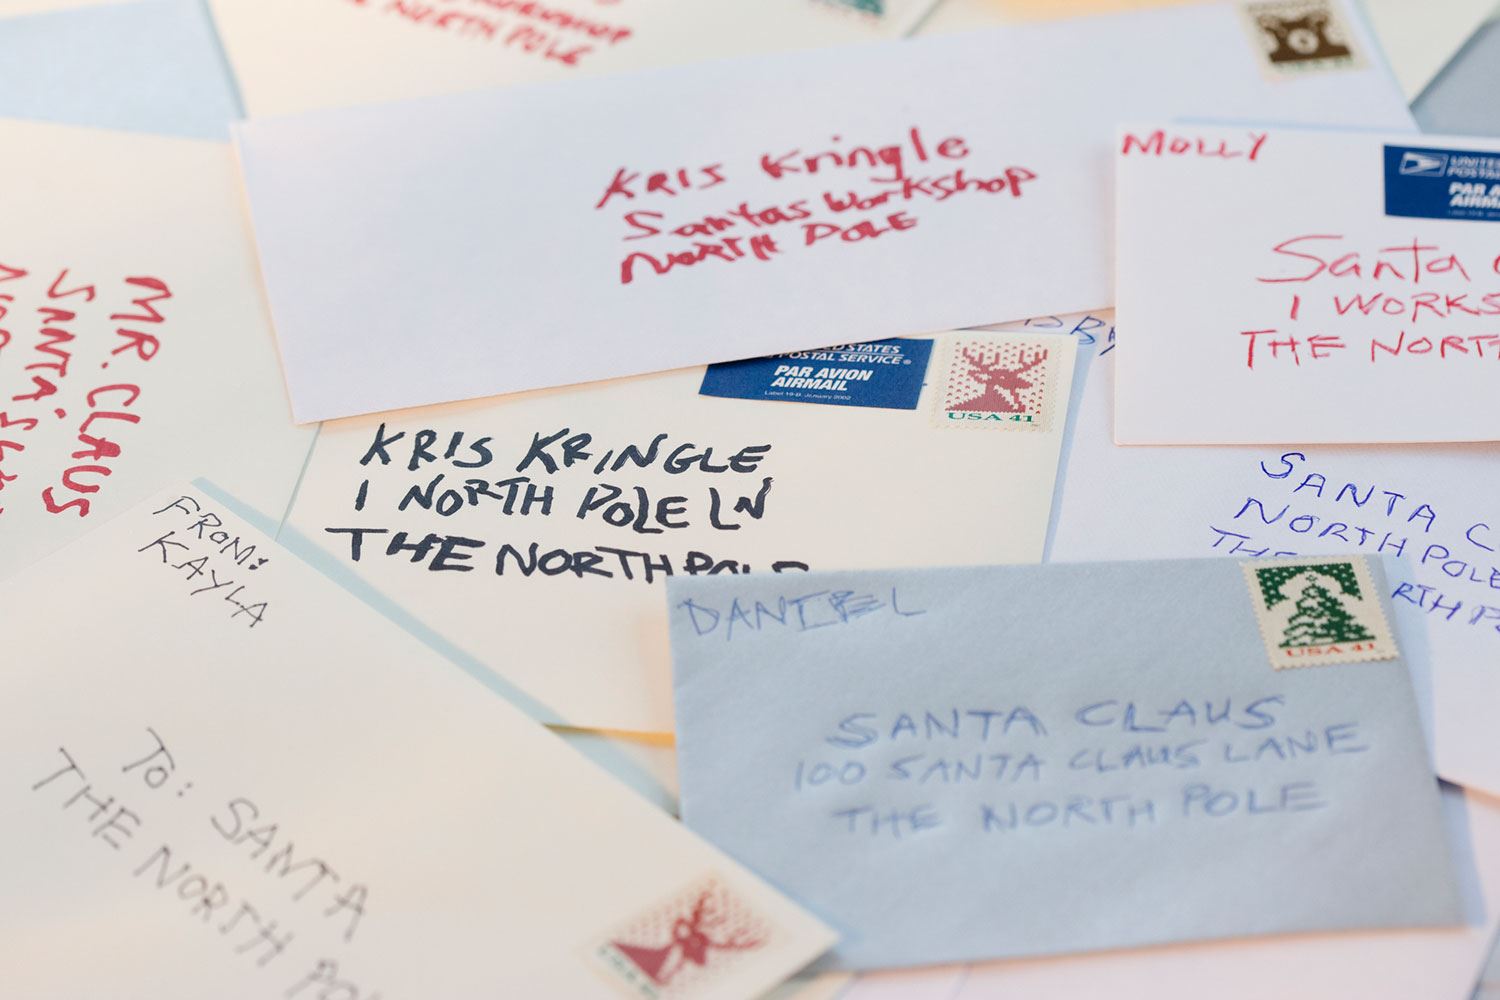 NORTH POLE
KRIS Kringle
Santas Workshop
NORTH POLE
MOLLY
UNITED
POSTAL
PAR A
AIRM
Santa
1 WORKS
THE NORT
MR. CLAUS
SANTA'S
STATES
POSTAL SERVICE®
PAR AVION
AIRMAIL
Label 19-B, January 2002
USA 41
KRIS KRINGLE
1 NORTH POLE LN
THE NORTH POLE
SANTA C
NORTH POLE
RTH P
FROM:
KAYLA
TO: SANTA
THE NORTH PO
DANIEL
USA 41
SANTA CLAUS
100 SANTA CLAUS LANE
THE NORTH POLE